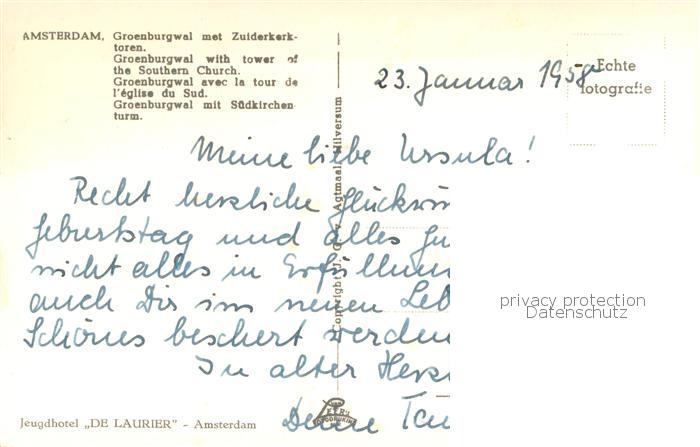 AMSTERDAM, Groenburgwal met Zuiderkerk-
toren.
Groenburgwal with tower of
the Southern Church.
Groenburgwal avec la tour de
l'église du Sud.
Groenburgwal mit Südkirchen-
turm.
Echte
fotografie
23. Januar 1958
Meine liebe Ursula!
Recht herzliche Glückwün
Geburtstag und alles Gu
nicht alles in Erfüllun
auch Dir im neuen Leb
Schönes beschert werden
In alter Herz
Deine Tan
Copyright J. G. v. Agtmaal Hilversum
privacy protection
Datenschutz
Jeugdhotel „DE LAURIER" - Amsterdam